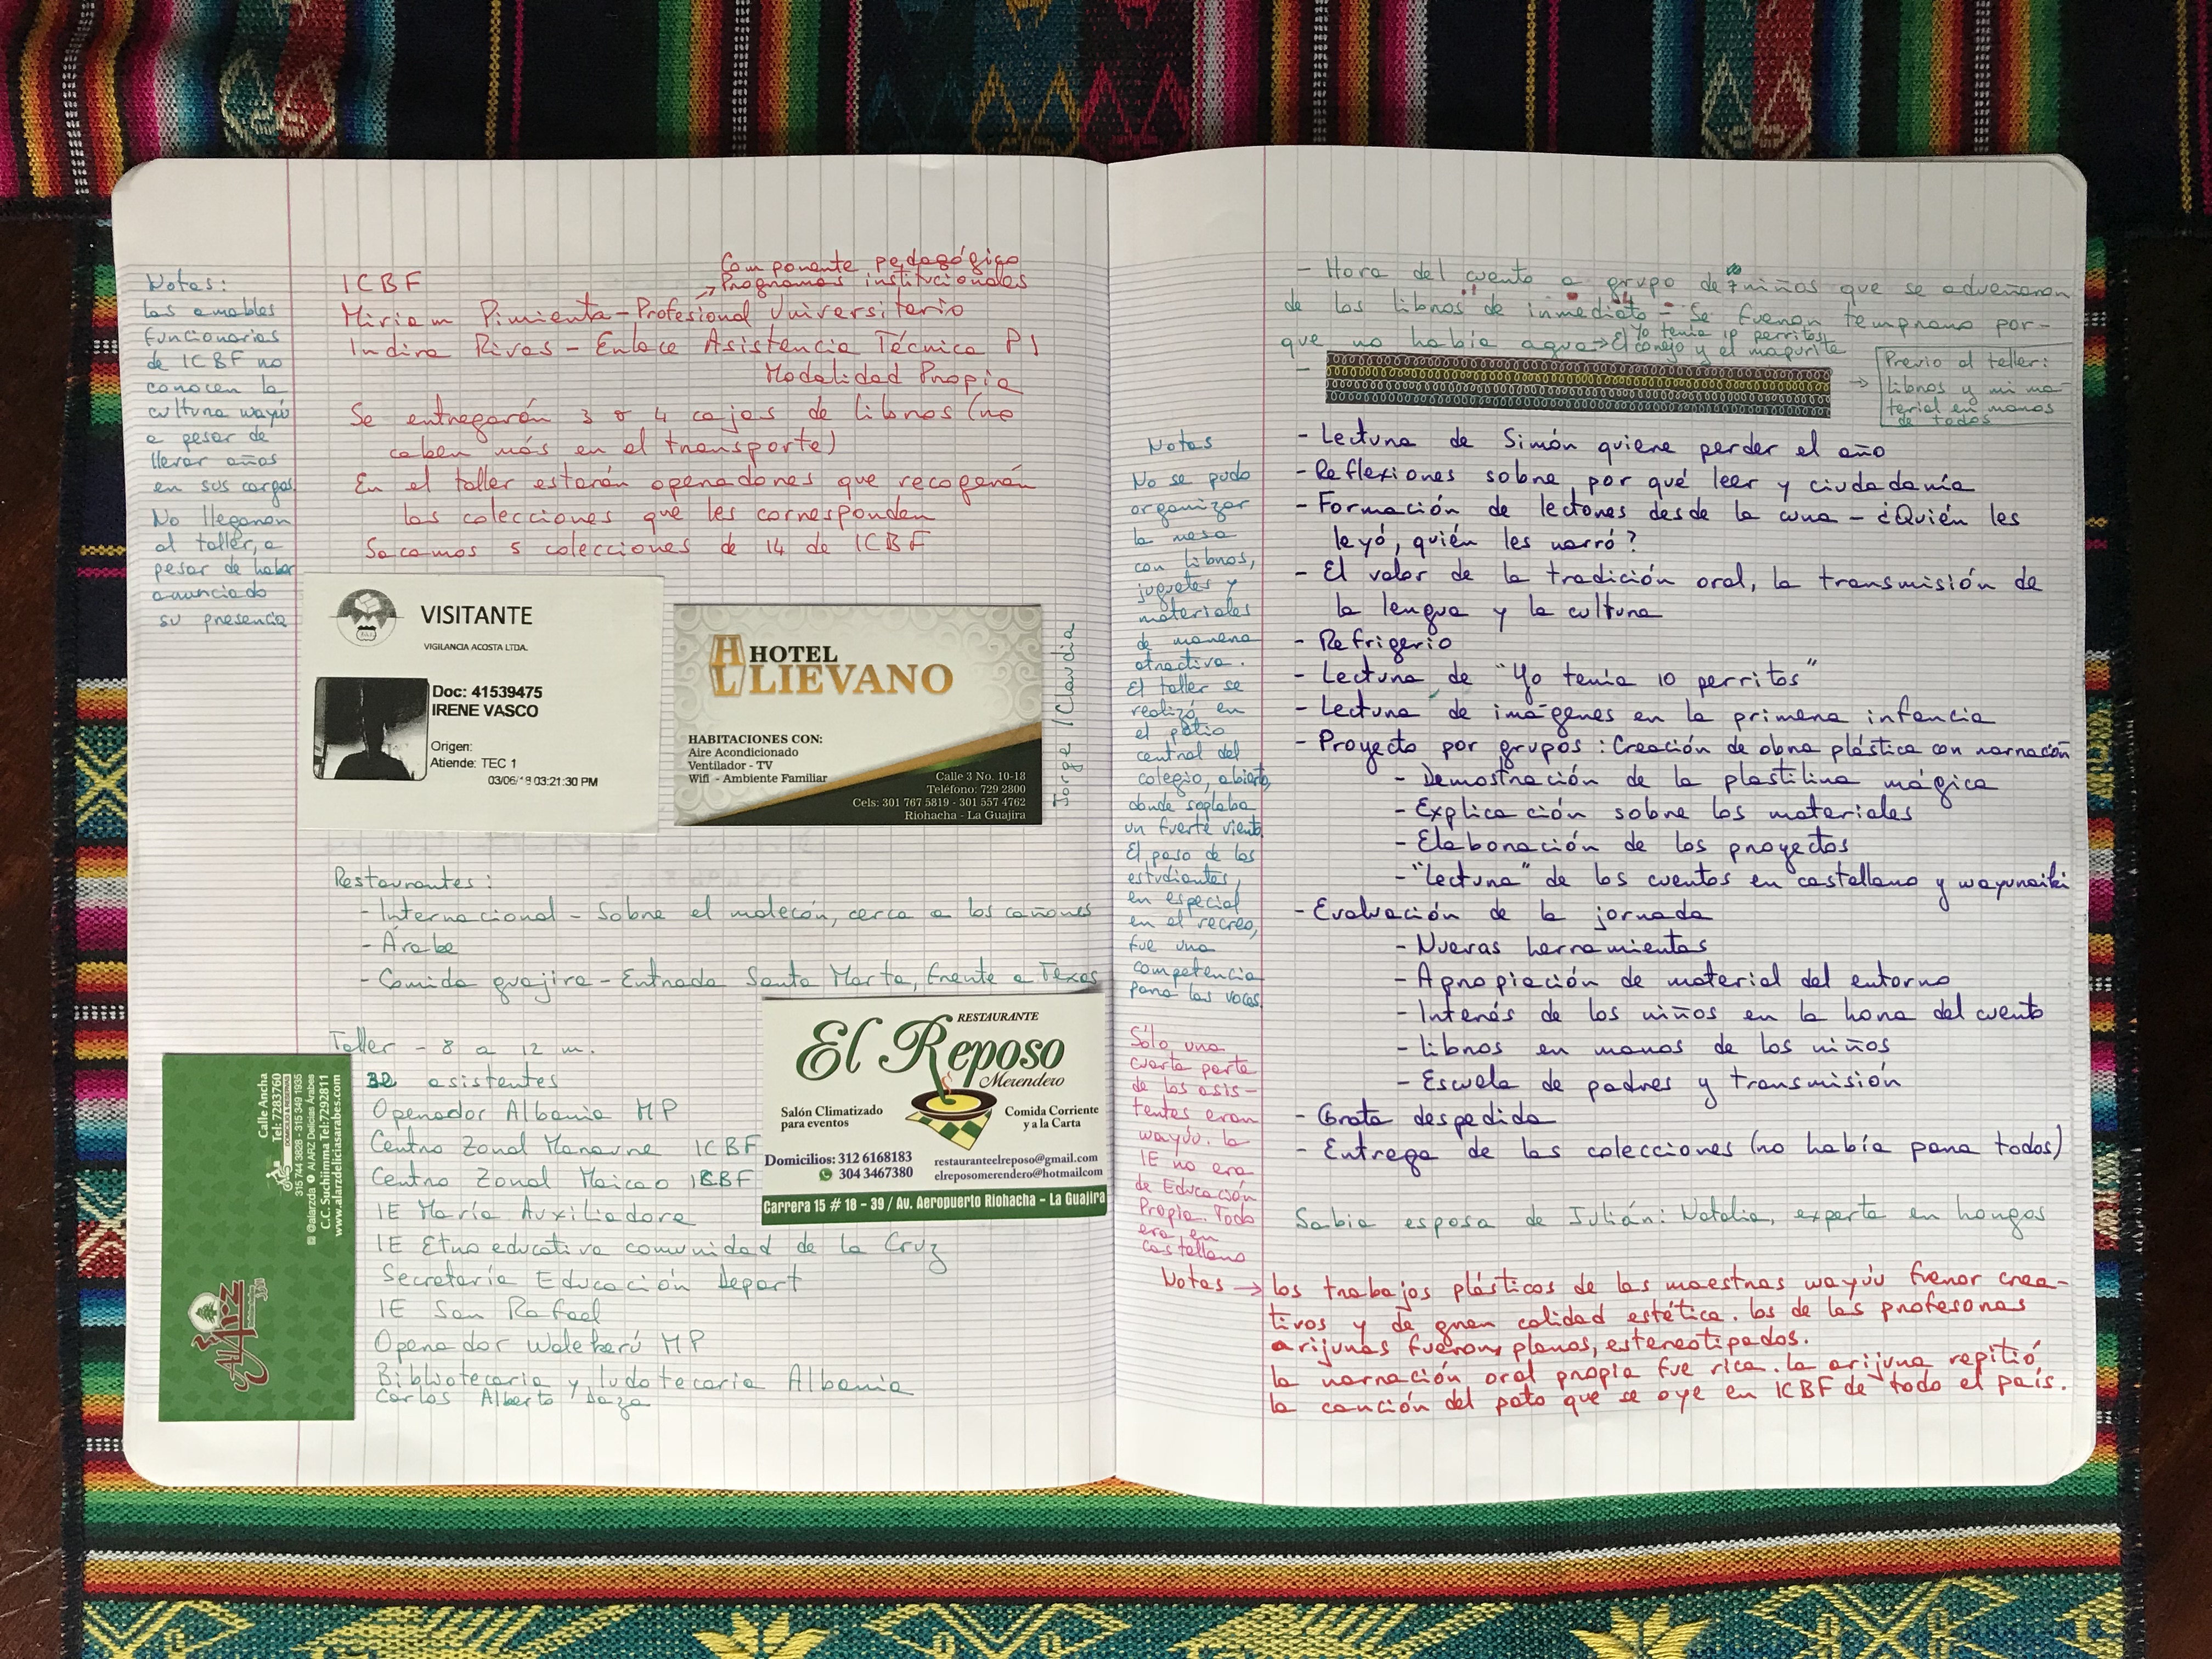 Notas:
Las amables
funcionarias
de ICBF no
conocen la
cultura wayúu
a pesar de
llevar años
en sus cargos.
No llegaron
al taller, a
pesar de haber
anunciado
su presencia
ICBF
Componente pedagógico
→ Programas institucionales
Miriam Pimienta - Profesional Universitario
Indira Rivas - Enlace Asistencia Técnica PI
Modalidad Propia
Se entregarán 3 o 4 cajas de libros (no
caben más en el transporte)
En el taller estarán operadores que recogerán
las colecciones que les corresponden
Sacamos 5 colecciones de 14 de ICBF
VISITANTE
VIGILANCIA ACOSTA LTDA.
Doc: 41539475
IRENE VASCO
Origen:
Atiende: TEC 1
03/06/18 03:21:30 PM
HL HOTEL
LIEVANO
HABITACIONES CON:
Aire Acondicionado
Ventilador - TV
Wifi - Ambiente Familiar
Calle 3 No. 10-18
Teléfono: 729 2800
Cels: 301 767 5819 - 301 557 4762
Riohacha - La Guajira
Jorge / Claudia
Restaurantes:
- Internacional - Sobre el malecón, cerca a los cañones
- Árabe
- Comida guajira - Entrada Santa Marta, frente a Texas
Taller - 8 a 12 m.
32 asistentes
Operador Albania MP
Centro Zonal Manaure ICBF
Centro Zonal Maicao ICBF
IE María Auxiliadora
IE Etnoeducativa comunidad de la Cruz
Secretaría Educación Depart
IE San Rafael
Operador Walekerú MP
Bibliotecaria y ludotecaria Albania
Carlos Alberto Daza
RESTAURANTE
El Reposo
Merendero
Salón Climatizado
para eventos
Comida Corriente
y a la Carta
Domicilios: 312 6168183
304 3467380
restauranteelreposo@gmail.com
elreposomerendero@hotmailcom
Carrera 15 # 18 - 39 / Av. Aeropuerto Riohacha - La Guajira
Calle Ancha
Tel: 7283760
315 744 3828 - 315 349 1935
@alarzda AlARZ Delicias Árabes
C.C. Suchiimma Tel:7292811
www.alarzdeliciasarabes.com
AlArz
- Hora del cuento a grupo de 7 niños que se adueñaron
de los libros de inmediato - Se fueron temprano por-
que no había agua → El conejo y el mapurite
Yo tenía 10 perritos
→ Previo al taller:
libros y mi ma-
terial en manos
de todos
- Lectura de Simón quiere perder el año
- Reflexiones sobre por qué leer y ciudadanía
- Formación de lectores desde la cuna - ¿Quién les
leyó, quién les narró?
- El valor de la tradición oral, la transmisión de
la lengua y la cultura
- Refrigerio
- Lectura de "Yo tenía 10 perritos"
- Lectura de imágenes en la primera infancia
- Proyecto por grupos: Creación de obra plástica con narración
- Demostración de la plastilina mágica
- Explicación sobre los materiales
- Elaboración de los proyectos
- "Lectura" de los cuentos en castellano y wayunaiki
- Evaluación de la jornada
- Nuevas herramientas
- Apropiación de material del entorno
- Interés de los niños en la hora del cuento
- Libros en manos de los niños
- Escuela de padres y transmisión
- Grata despedida
- Entrega de las colecciones (no había para todos)
Sabia esposa de Julián: Natalia, experta en hongos
Notas
No se pudo
organizar
la mesa
con libros,
juguetes y
materiales
de manera
atractiva.
El taller se
realizó en
el patio
central del
colegio, abierto,
donde soplaba
un fuerte viento.
El paso de los
estudiantes,
en especial
en el recreo,
fue una
competencia
para las voces.
Sólo una
cuarta parte
de los asis-
tentes eran
wayúu. La
IE no era
de Educación
Propia. Todo
era en
castellano
Notas → Los trabajos plásticos de las maestras wayúu fueron crea-
tivos y de gran calidad estética. Los de las profesoras
arijunas fueron planos, estereotipados.
La narración oral propia fue rica. La arijuna repitió
la canción del pato que se oye en ICBF de todo el país.